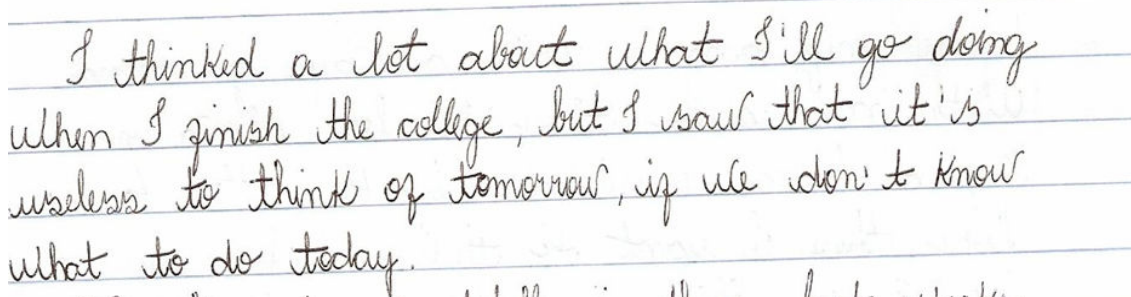 I thinked a lot about what I'll go doing
when I finish the college, but I saw that it's
useless to think of tomorrow, if we don't know
what to do today.